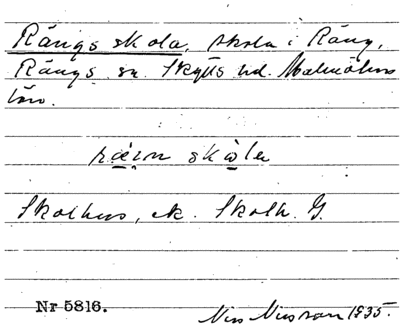 Rängs skola, skola i Räng,
Rängs sn. Skytts hd. Malmöhus
län.
skola
Skolhus, ek. Skolh. G.
Nr 5816.
Nils Nilsson 1935.